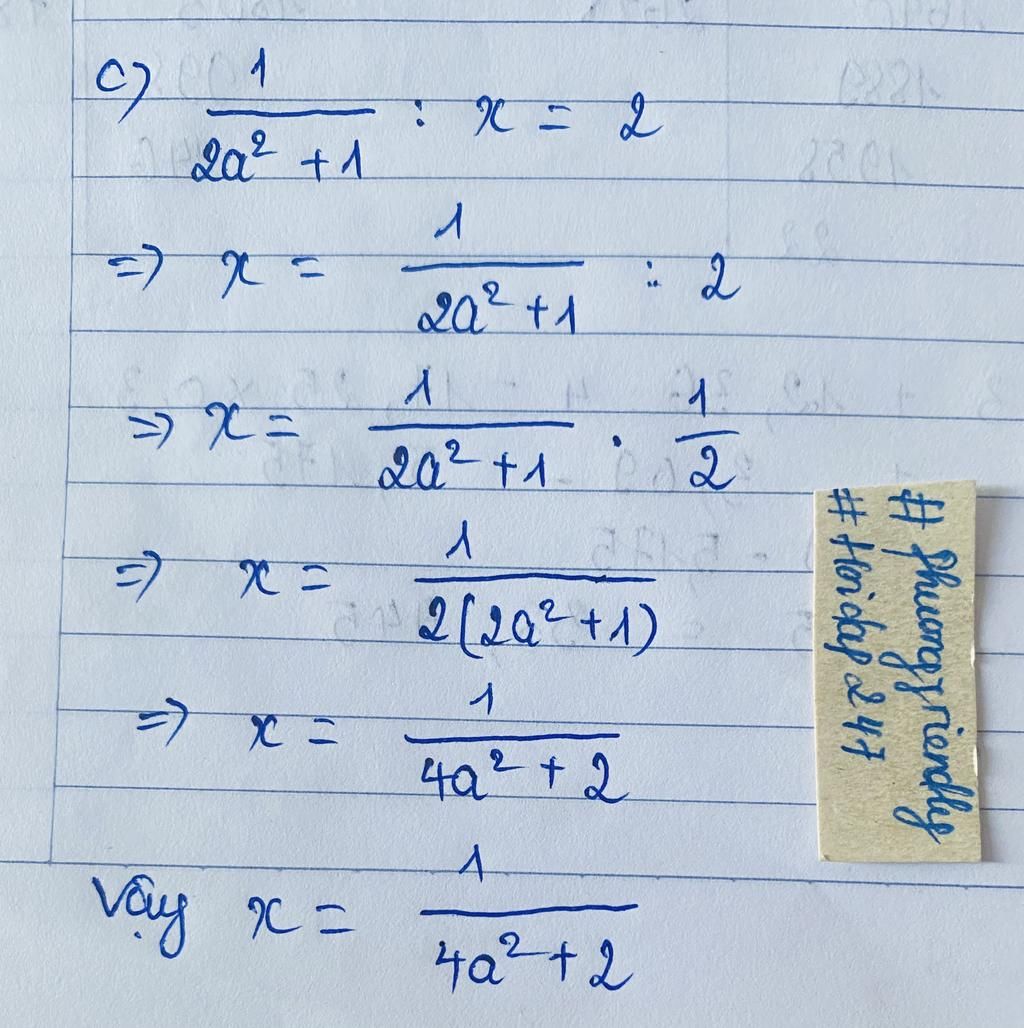 c) 1/(2a² + 1) : x = 2
=> x = 1/(2a² + 1) : 2
=> x = 1/(2a² + 1) . 1/2
=> x = 1/(2(2a² + 1))
=> x = 1/(4a² + 2)
Vậy x = 1/(4a² + 2)
# phuongfriendly
# Hoidap247